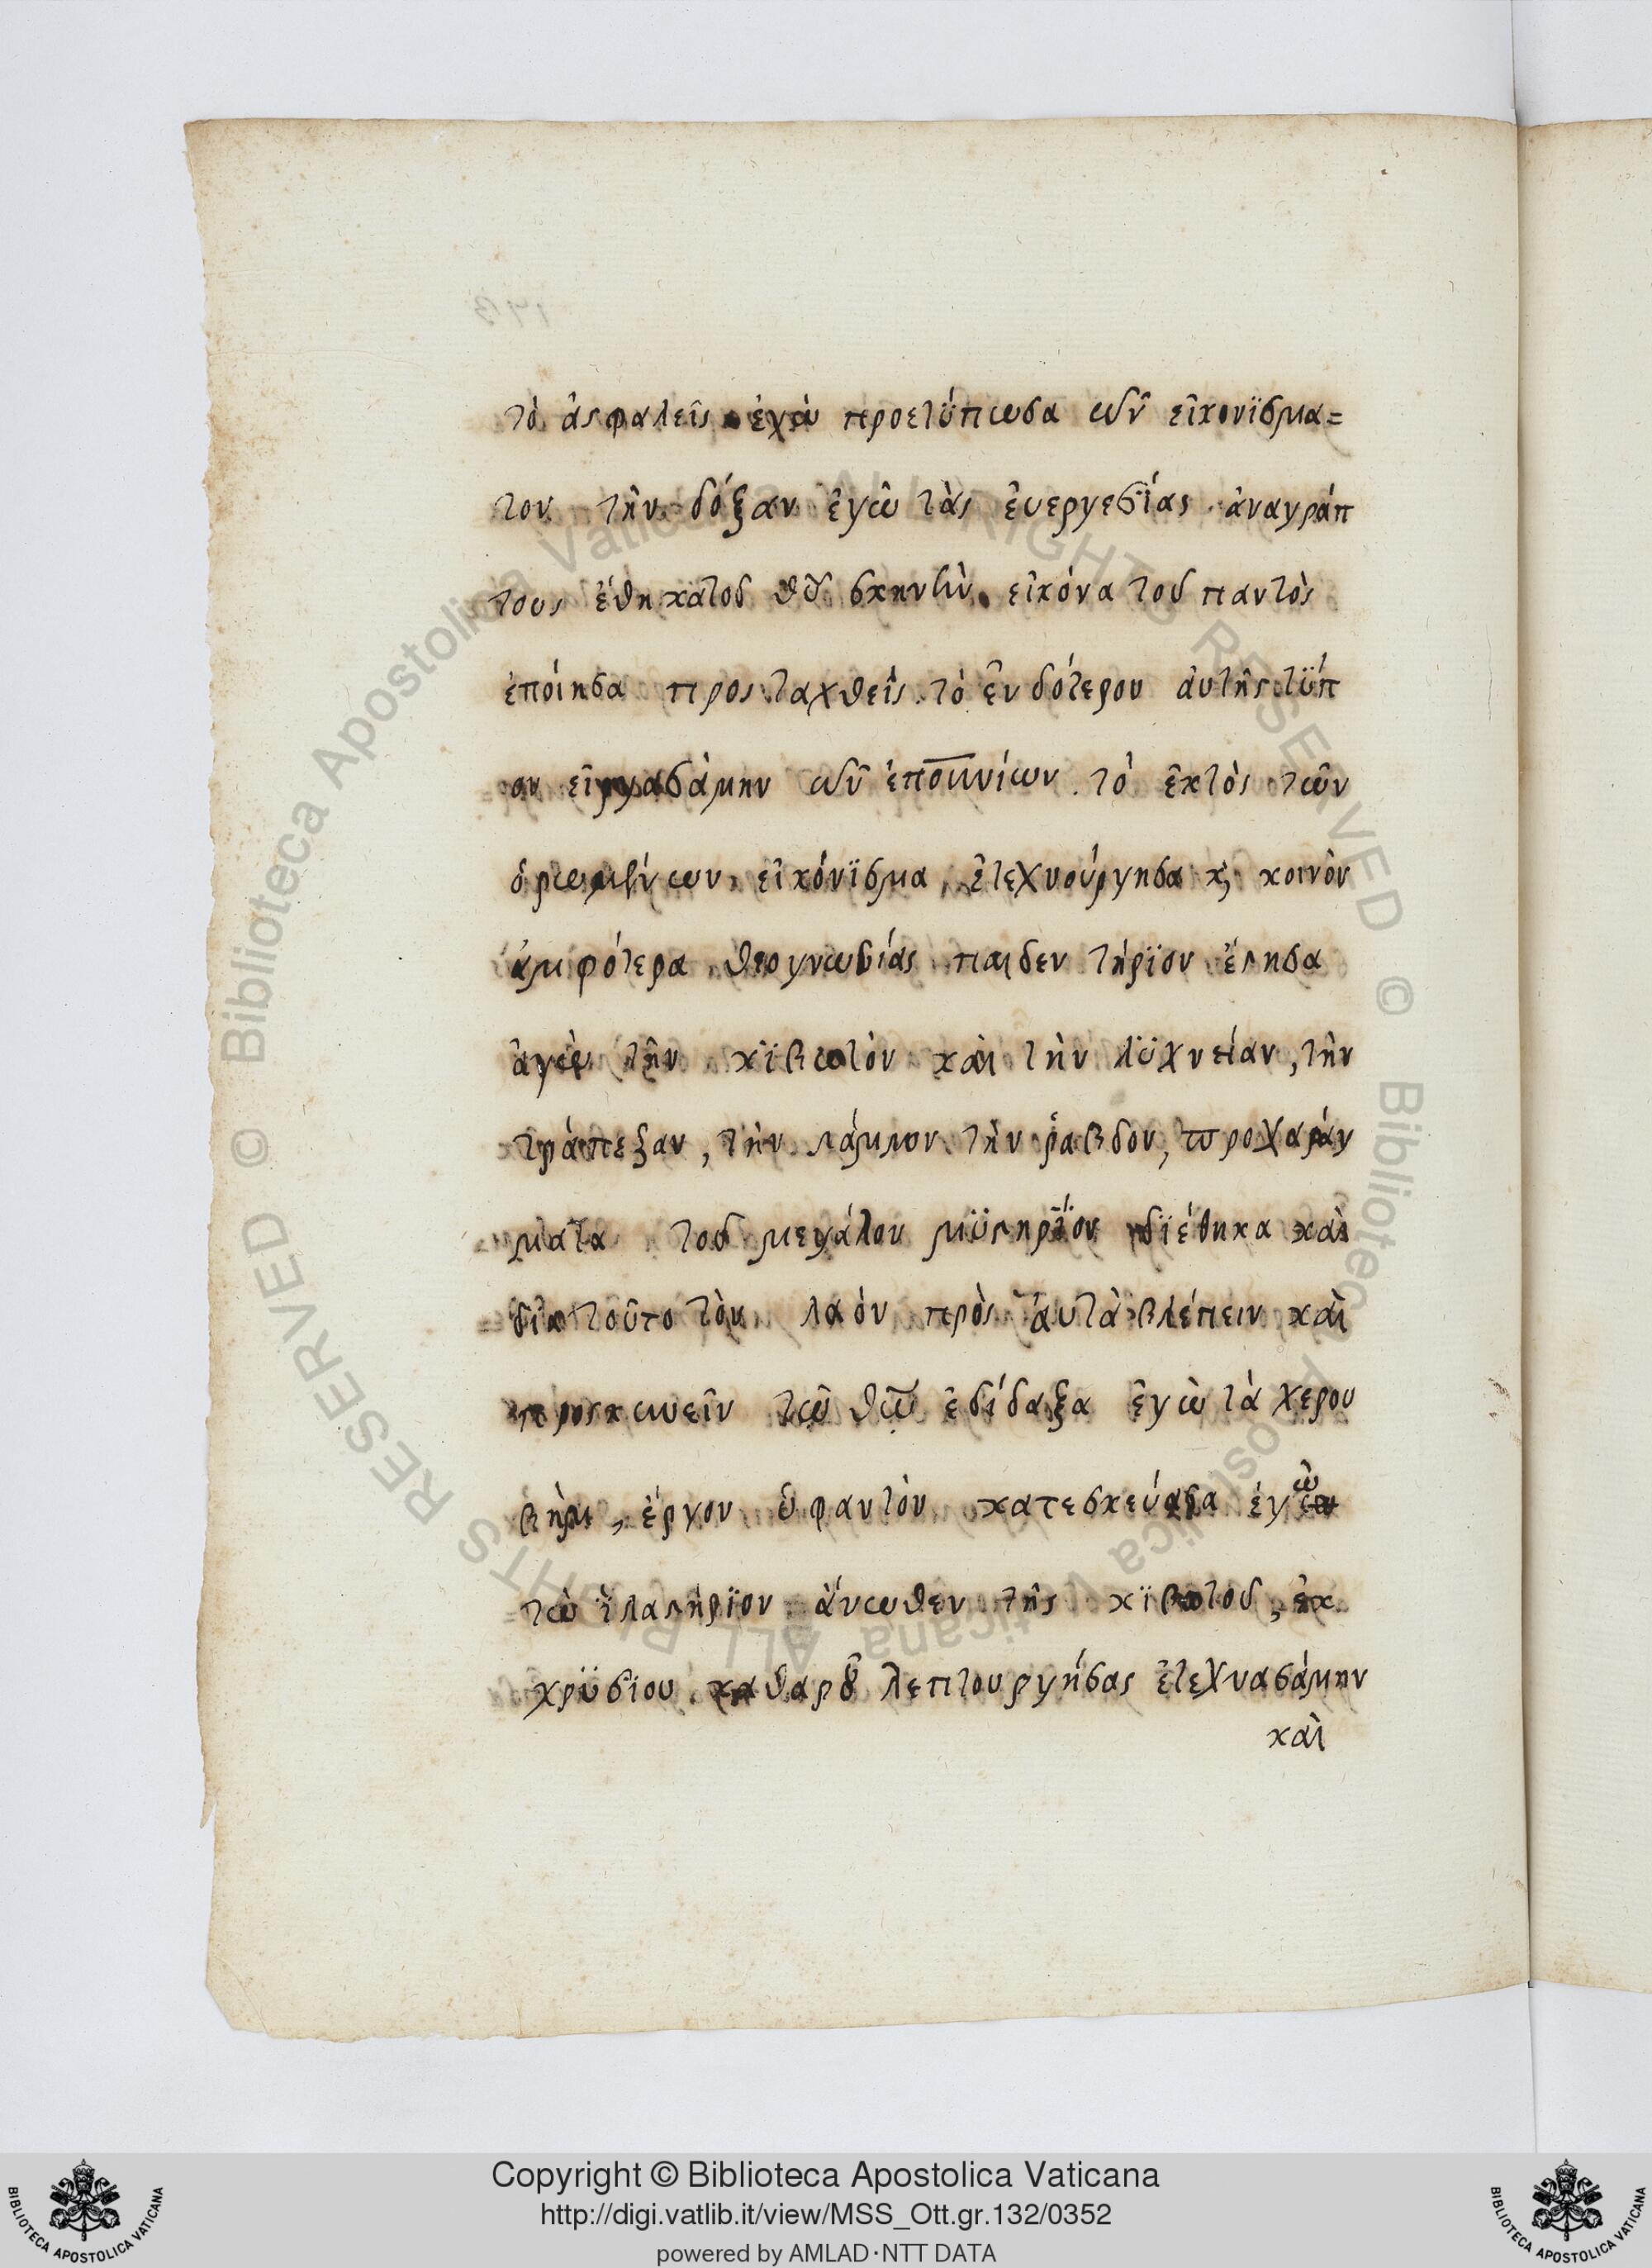 τὸ ἀσφαλεῖς ἐγὼ προετύπωσα σὺν εἰκονϊσμα=
τον τὴν δόξαν ἐγὼ τὰς ἐυεργεσίας ἀναγράπ
τους ἔθηκα τοῦ θῦ σκηνὴν. εἰκόνα τοῦ παντὸς
ἐποίησα προσταχθεὶς. τὸ ἐνδότερου ἀυτῆς τϋπ
ον εἰργασάμην σὺν ἐπουνίων. τὸ ἐκτὸς τῶν
ὁρωμένων εἰκόνϊσμα, ἐτεχνούργησα ϗ κοινὸν
ἀμφότερα θεογνωσίας παιδευτήρϊον ἔστησα
ἀγὼ τὴν κϊβωτὸν καὶ τὴν λϋχνείαν, τὴν
τράπεξαν, τὴν στάμνον τὴν ῥαβδον, προχαράγ
ματα τοῦ μεγάλου μϋστηρΐου δϊέθηκα καὶ
διὰ τοῦτο τὸν λαὸν πρὸς ἀυτὰ βλέπειν καὶ
προσκυνεῖν τῶ θῶ ἐδίδαξα ἐγὼ τὰ χερου
βὴμ, ἔργον ὑφαντὸν κατεσκεύασα ἐγὼ
τὼ ἱλαστήρϊον ἄνωθεν τῆς κϊβωτοῦ, ἐκ
χρϋσίου καθαροῦ λεπτουργήσας ἐτεχνασάμην
καὶ
Copyright © Biblioteca Apostolica Vaticana
http://digi.vatlib.it/view/MSS_Ott.gr.132/0352
powered by AMLAD·NTT DATA
BIBLIOTECA APOSTOLICA VATICANA
BIBLIOTECA APOSTOLICA VATICANA
© Biblioteca Apostolica Vaticana ALL RIGHTS RESERVED © Biblioteca Apostolica Vaticana ALL RIGHTS RESERVED